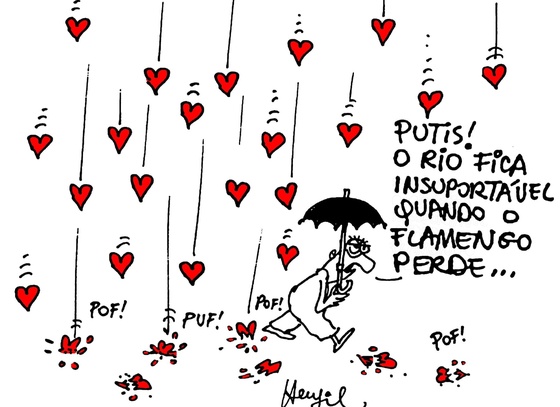 PUTIS!
O RIO FICA
INSUPORTÁVEL
QUANDO O
FLAMENGO
PERDE...
POF!
PUF!
POF!
POF!
Henfil.